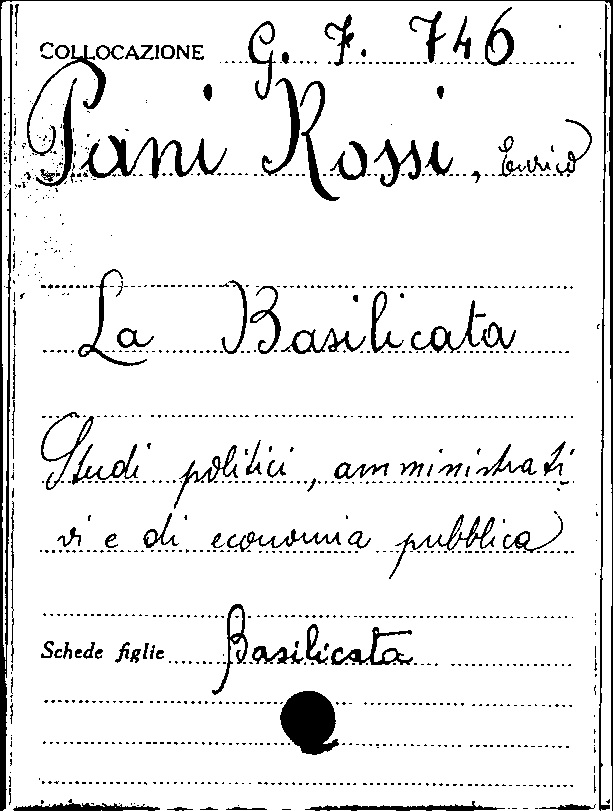 COLLOCAZIONE G. F. 746
Pani Rossi, Enrico
La Basilicata
Studi politici, amministrati
vi e di economia pubblica
Schede figlie Basilicata